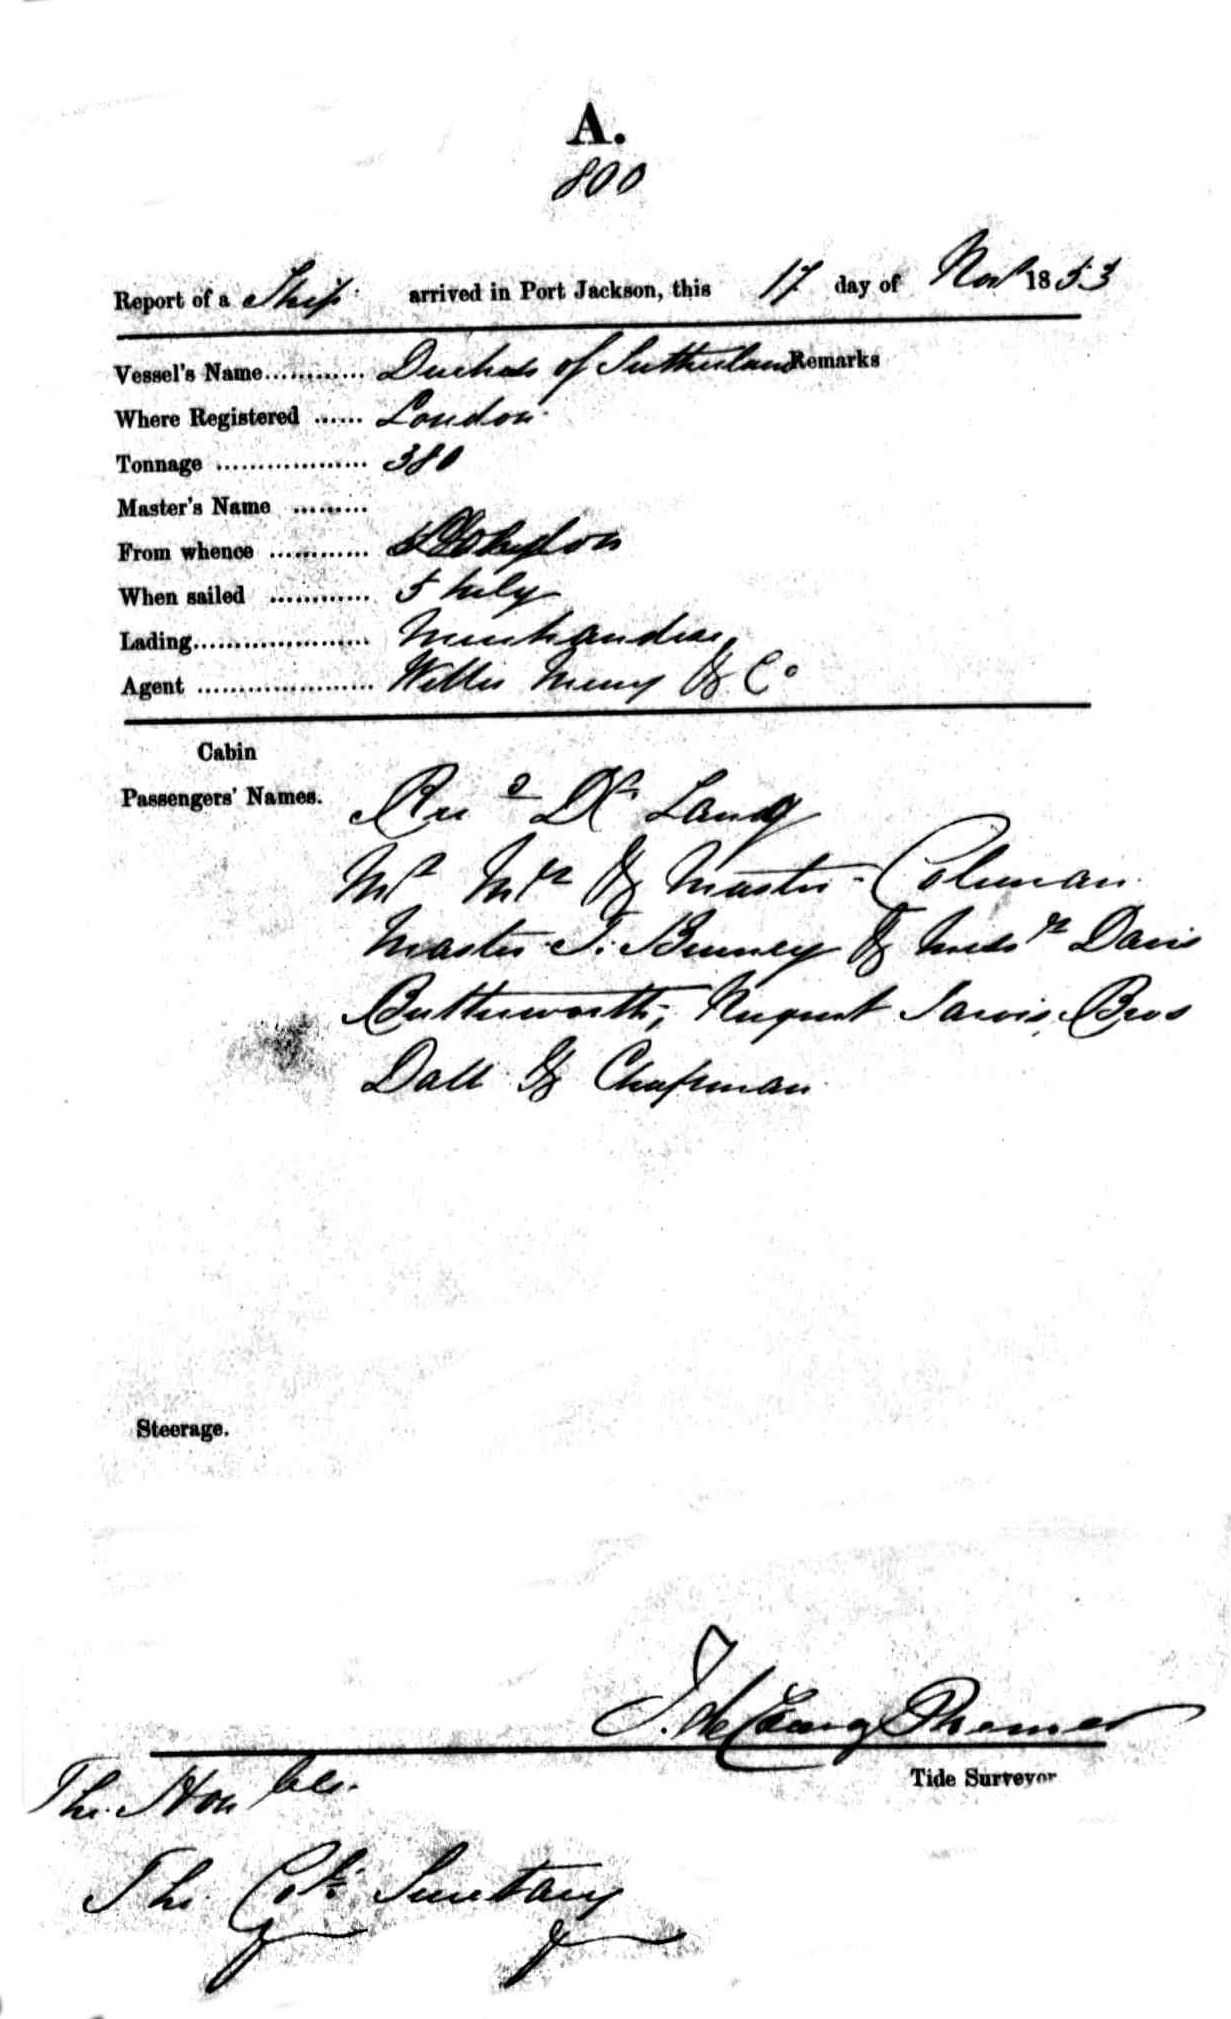 A.
800
Report of a Ship arrived in Port Jackson, this 17 day of Novr 1853
Vessel's Name............ Duchess of Sutherland Remarks
Where Registered ...... London
Tonnage .................. 380
Master's Name .........
From whence ............ London
When sailed ............ 5 July
Lading..................... Merchandise
Agent ..................... Willis Merry & Co
Cabin
Passengers' Names. Revd Dr Lang
Mr Mrs & Master Coleman
Master T. Binney & Messrs Davis
Butterworth, Nugent Jarvis, Bros
Dall & Chapman
Steerage.
Tide Surveyor
The Honble
The Col. Secretary